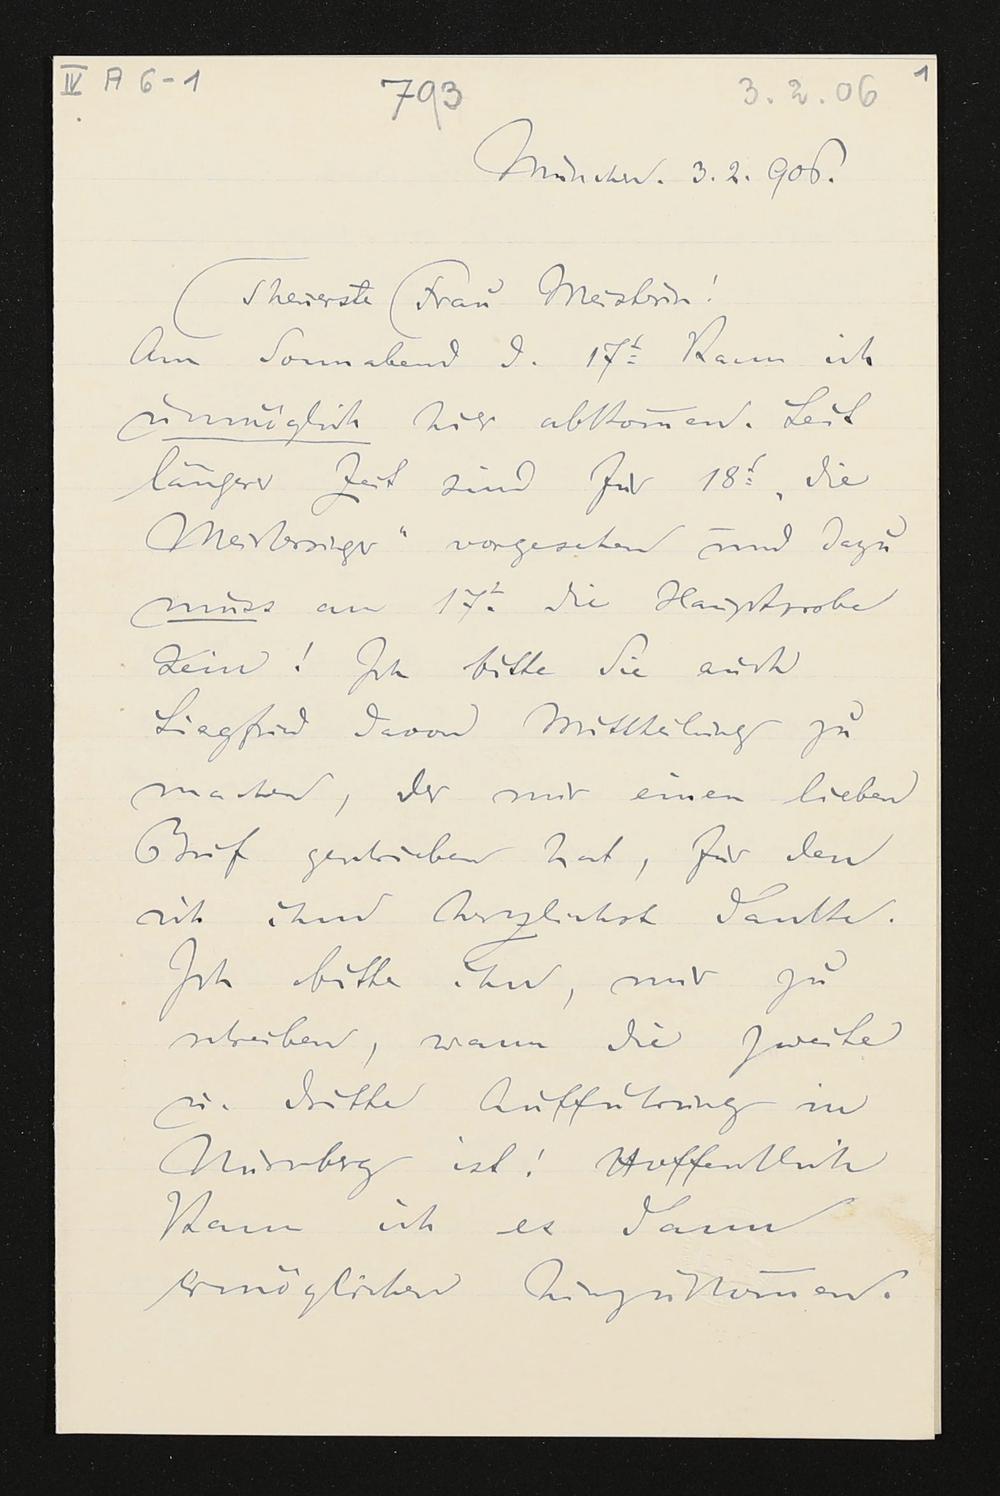 IV A 6-1
793
3.2.06
1
München. 3.2.906.
Theuerste Frau Meisterin!
Am Sonnabend d. 17t kann ich
unmöglich hier abkom̄en. Seit
längerer Zeit sind für 18t „die
Meistersinger“ vorgesehen und dazu
muss am 17t. die Hauptprobe
sein! Ich bitte Sie auch
Siegfried davon Mittheilung zu
machen, der mir einen lieben
Brief geschrieben hat, für den
ich ihm herzlichst danke.
Ich bitte ihn, mir zu
schreiben, wann die zweite
u. dritte Aufführung in
Nürnberg ist! Hoffentlich
kann ich es dann
ermöglichen hinzukom̄en.